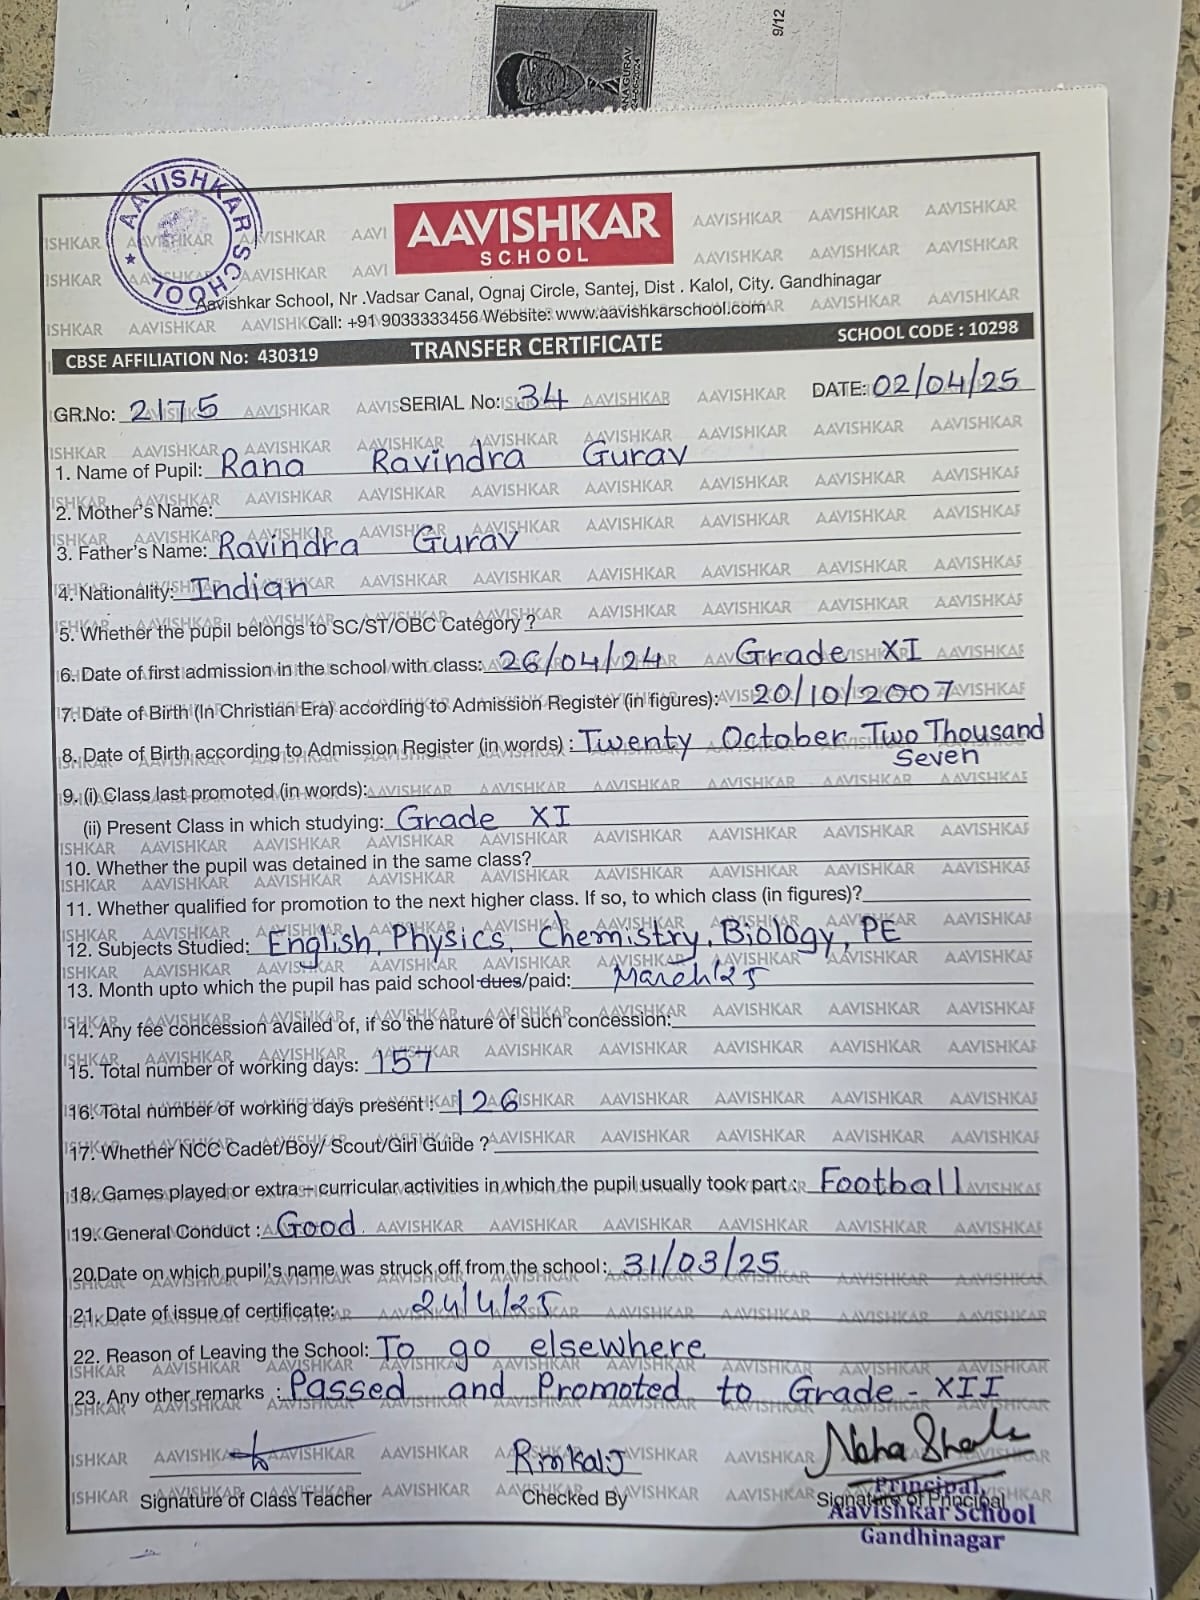 9/12
AAVISHKAR SCHOOL
AAVISHKAR
SCHOOL
Aavishkar School, Nr .Vadsar Canal, Ognaj Circle, Santej, Dist . Kalol, City. Gandhinagar
Call: +91 9033333456 Website: www.aavishkarschool.com
CBSE AFFILIATION No: 430319 TRANSFER CERTIFICATE SCHOOL CODE : 10298
GR.No: 2175 SERIAL No: 34 DATE: 02/04/25
1. Name of Pupil: Rana Ravindra Gurav
2. Mother's Name:
3. Father's Name: Ravindra Gurav
4. Nationality: Indian
5. Whether the pupil belongs to SC/ST/OBC Category ?
6. Date of first admission in the school with class: 26/04/24 Grade XI
7. Date of Birth (In Christian Era) according to Admission Register (in figures): 20/10/2007
8. Date of Birth according to Admission Register (in words) : Twenty October Two Thousand
Seven
9. (i) Class last promoted (in words):
(ii) Present Class in which studying: Grade XI
10. Whether the pupil was detained in the same class?
11. Whether qualified for promotion to the next higher class. If so, to which class (in figures)?
12. Subjects Studied: English, Physics, Chemistry, Biology, PE
13. Month upto which the pupil has paid school dues/paid: March/25
14. Any fee concession availed of, if so the nature of such concession:
15. Total number of working days: 157
16. Total number of working days present : 126
17. Whether NCC Cadet/Boy/ Scout/Girl Guide ?
18. Games played or extra – curricular activities in which the pupil usually took part : Football
19. General Conduct : Good
20.Date on which pupil's name was struck off from the school: 31/03/25
21. Date of issue of certificate: 24/4/25
22. Reason of Leaving the School: To go elsewhere
23. Any other remarks : Passed and Promoted to Grade - XII
Signature of Class Teacher Checked By Signature of Principal
Principal,
Aavishkar School
Gandhinagar